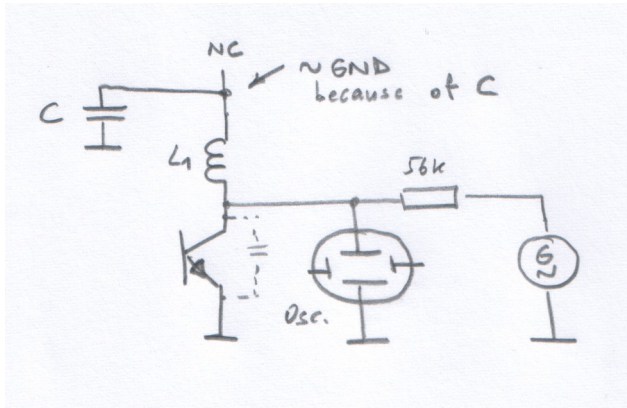 NC
~ GND
because of C
C
L1
56k
G
~
Osc.